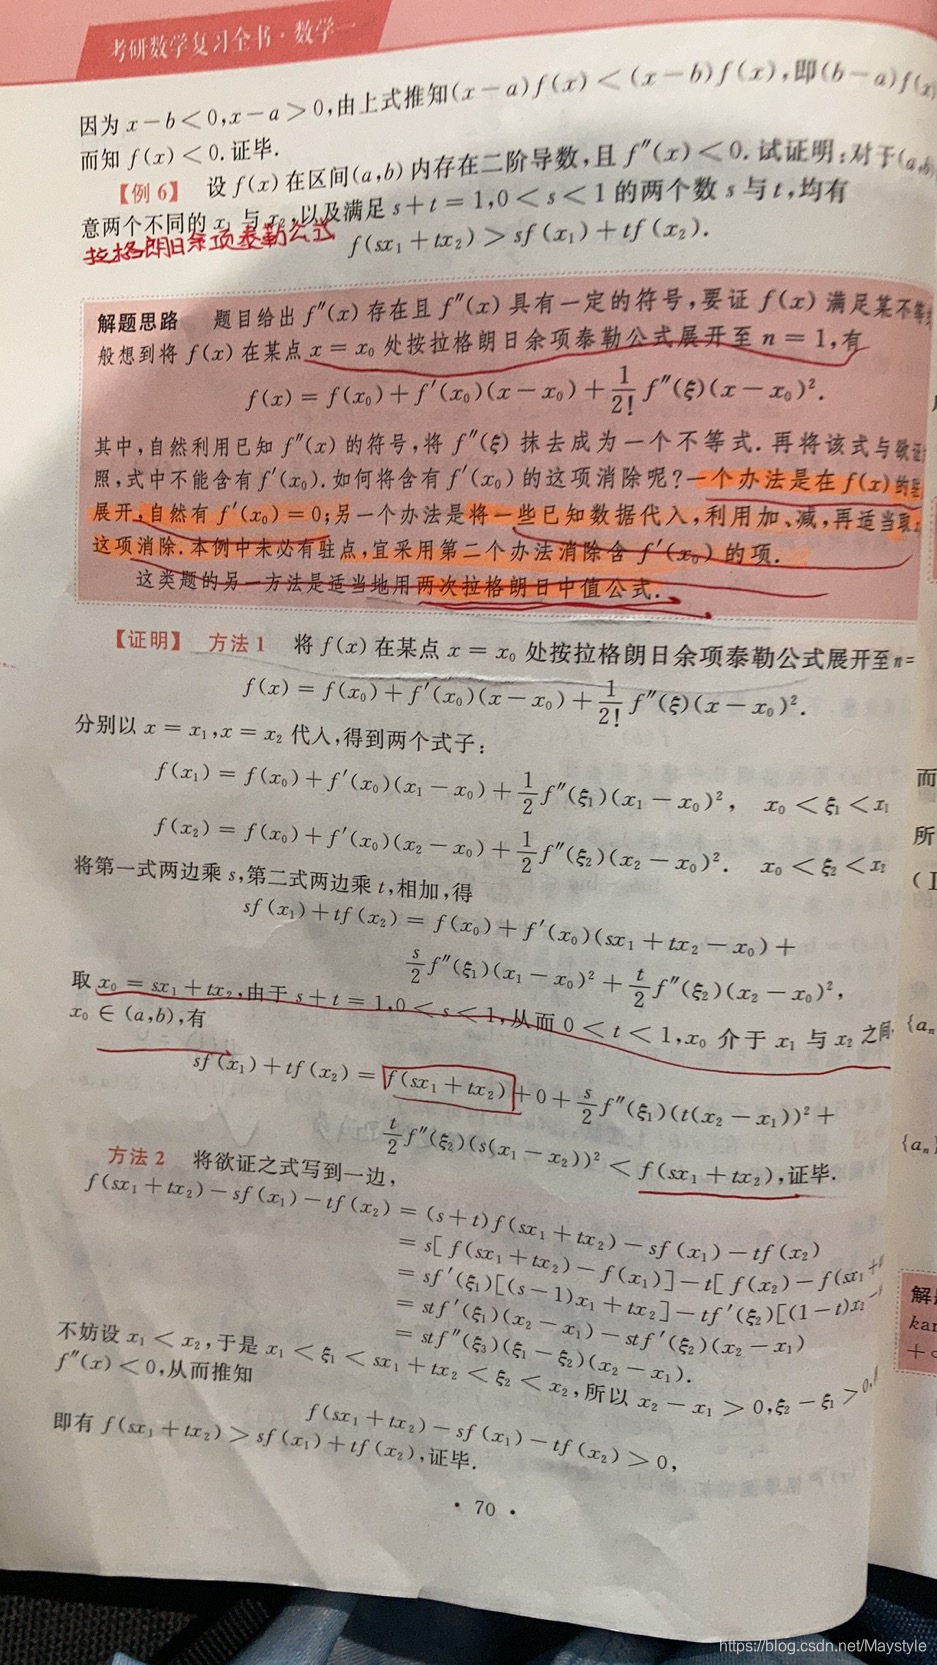 考研数学复习全书·数学一
因为 x－b＜0,x－a＞0,由上式推知(x－a)f(x)＜(x－b)f(x),即(b－a)f(x)
而知 f(x)＜0.证毕.
【例 6】 设 f(x)在区间(a,b)内存在二阶导数,且 f″(x)＜0.试证明:对于(a,b)
意两个不同的 x₁ 与 x₂,以及满足 s＋t＝1,0＜s＜1 的两个数 s 与 t,均有
拉格朗日余项泰勒公式
f(sx₁＋tx₂)＞sf(x₁)＋tf(x₂).
解题思路 题目给出 f″(x)存在且 f″(x)具有一定的符号,要证 f(x)满足某不等
般想到将 f(x)在某点 x＝x₀ 处按拉格朗日余项泰勒公式展开至 n＝1,有
f(x)＝f(x₀)＋f′(x₀)(x－x₀)＋1/2! f″(ξ)(x－x₀)².
其中,自然利用已知 f″(x)的符号,将 f″(ξ)抹去成为一个不等式.再将该式与欲证
照,式中不能含有f′(x₀).如何将含有 f′(x₀)的这项消除呢?一个办法是在 f(x)的
展开,自然有 f′(x₀)＝0;另一个办法是将一些已知数据代入,利用加、减,再适当取
这项消除.本例中未必有驻点,宜采用第二个办法消除含 f′(x₀)的项.
这类题的另一方法是适当地用两次拉格朗日中值公式.
【证明】 方法 1 将 f(x)在某点 x＝x₀ 处按拉格朗日余项泰勒公式展开至 n＝
f(x)＝f(x₀)＋f′(x₀)(x－x₀)＋1/2! f″(ξ)(x－x₀)².
分别以 x＝x₁,x＝x₂ 代入,得到两个式子:
f(x₁)＝f(x₀)＋f′(x₀)(x₁－x₀)＋1/2 f″(ξ₁)(x₁－x₀)², x₀＜ξ₁＜x₁
f(x₂)＝f(x₀)＋f′(x₀)(x₂－x₀)＋1/2 f″(ξ₂)(x₂－x₀)². x₀＜ξ₂＜x₂
将第一式两边乘 s,第二式两边乘 t,相加,得
sf(x₁)＋tf(x₂)＝f(x₀)＋f′(x₀)(sx₁＋tx₂－x₀)＋
s/2 f″(ξ₁)(x₁－x₀)²＋t/2 f″(ξ₂)(x₂－x₀)²,
取 x₀＝sx₁＋tx₂,由于 s＋t＝1,0＜s＜1,从而 0＜t＜1,x₀ 介于 x₁ 与 x₂ 之间
x₀∈(a,b),有
sf(x₁)＋tf(x₂)＝f(sx₁＋tx₂)＋0＋s/2 f″(ξ₁)(t(x₂－x₁))²＋
t/2 f″(ξ₂)(s(x₁－x₂))²＜f(sx₁＋tx₂),证毕.
方法 2 将欲证之式写到一边,
f(sx₁＋tx₂)－sf(x₁)－tf(x₂)＝(s＋t)f(sx₁＋tx₂)－sf(x₁)－tf(x₂)
＝s[f(sx₁＋tx₂)－f(x₁)]－t[f(x₂)－f(sx₁＋
＝sf′(ξ₁)[(s－1)x₁＋tx₂]－tf′(ξ₂)[(1－t)x₂－
＝stf′(ξ₁)(x₂－x₁)－stf′(ξ₂)(x₂－x₁)
＝stf″(ξ₃)(ξ₁－ξ₂)(x₂－x₁).
不妨设 x₁＜x₂,于是 x₁＜ξ₁＜sx₁＋tx₂＜ξ₂＜x₂,所以 x₂－x₁＞0,ξ₂－ξ₁＞0,
f″(x)＜0,从而推知
f(sx₁＋tx₂)－sf(x₁)－tf(x₂)＞0,
即有 f(sx₁＋tx₂)＞sf(x₁)＋tf(x₂),证毕.
· 70 ·
而
所
{aₙ
{aₙ}
解
kar
https://blog.csdn.net/Maystyle